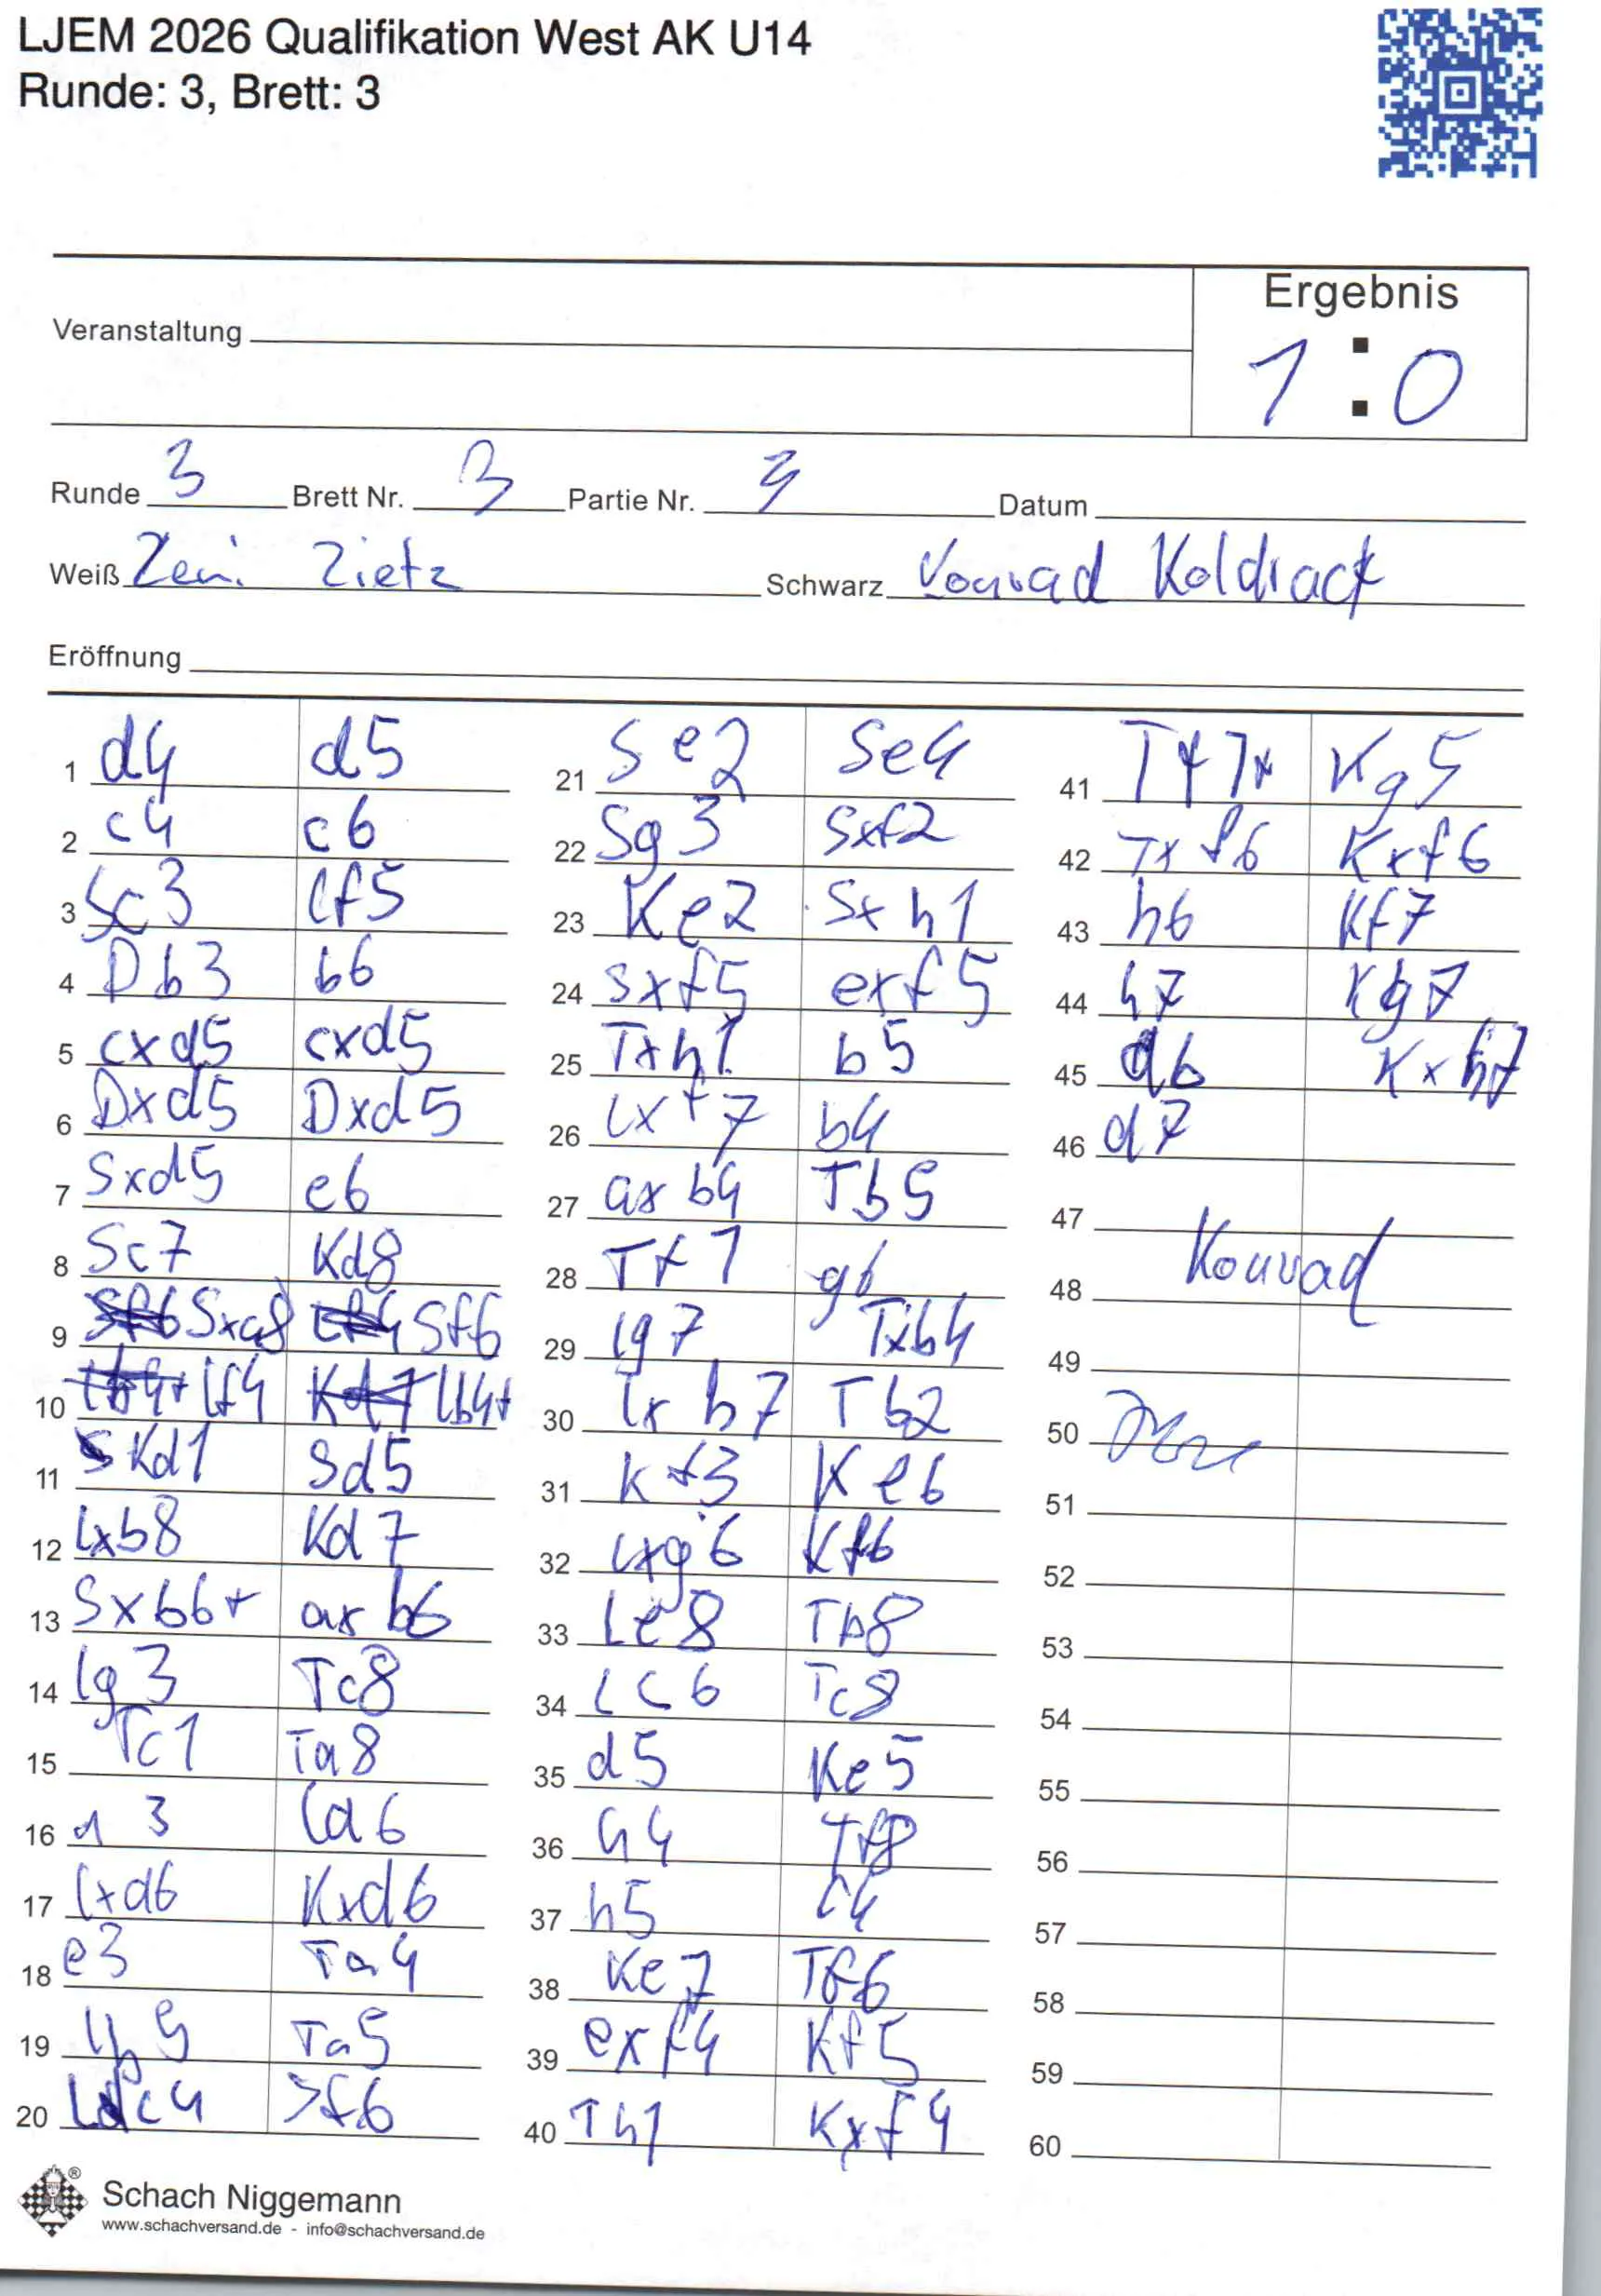 LJEM 2026 Qualifikation West AK U14
Runde: 3, Brett: 3
Ergebnis
1 : 0
Veranstaltung
Runde 3 Brett Nr. 3 Partie Nr. 3 Datum
Weiß Zietz Schwarz Konrad Koldrack
Eröffnung
1 d4 d5
2 c4 c6
3 Sc3 Lf5
4 Db3 b6
5 cxd5 cxd5
6 Dxd5 Dxd5
7 Sxd5 e6
8 Sc7 Kd8
9 Sxa8 Sf6
10 Lf4 Lb4+
11 Kd1 Sd5
12 Lxb8 Kd7
13 Sxb6+ axb6
14 Lg3 Tc8
15 Tc1 Ta8
16 a3 Ld6
17 Lxd6 Kxd6
18 e3 Ta4
19 Lb5 Ta5
20 Lc4 Sf6
21 Se2 Se4
22 Sg3 Sxf2
23 Ke2 Sxh1
24 Sxf5 exf5
25 Txh1 b5
26 Lxf7 b4
27 axb4 Tb5
28 Tf1 g6
29 Lg7 Txb4
30 Lxh7 Tb2
31 Kf3 Ke6
32 Lxg6 Kf6
33 Le8 Tb8
34 Lc6 Tc8
35 d5 Ke5
36 h4 Tf8
37 h5 f4
38 Ke7 Tf6
39 exf4 Kf5
40 Th1 Kxf4
41 Tf1+ Kg5
42 Txf6 Kxf6
43 h6 Kf7
44 h7 Kg7
45 d6 Kxh7
46 d7
47
48
Konrad
49
50
51
52
53
54
55
56
57
58
59
60
Schach Niggemann
www.schachversand.de - info@schachversand.de